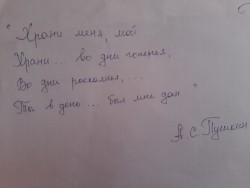 "Храни меня, мой
Храни... во дни гоненья,
Во дни раскаянья,...
Ты в день... был мне дан."
А. С. Пушкин